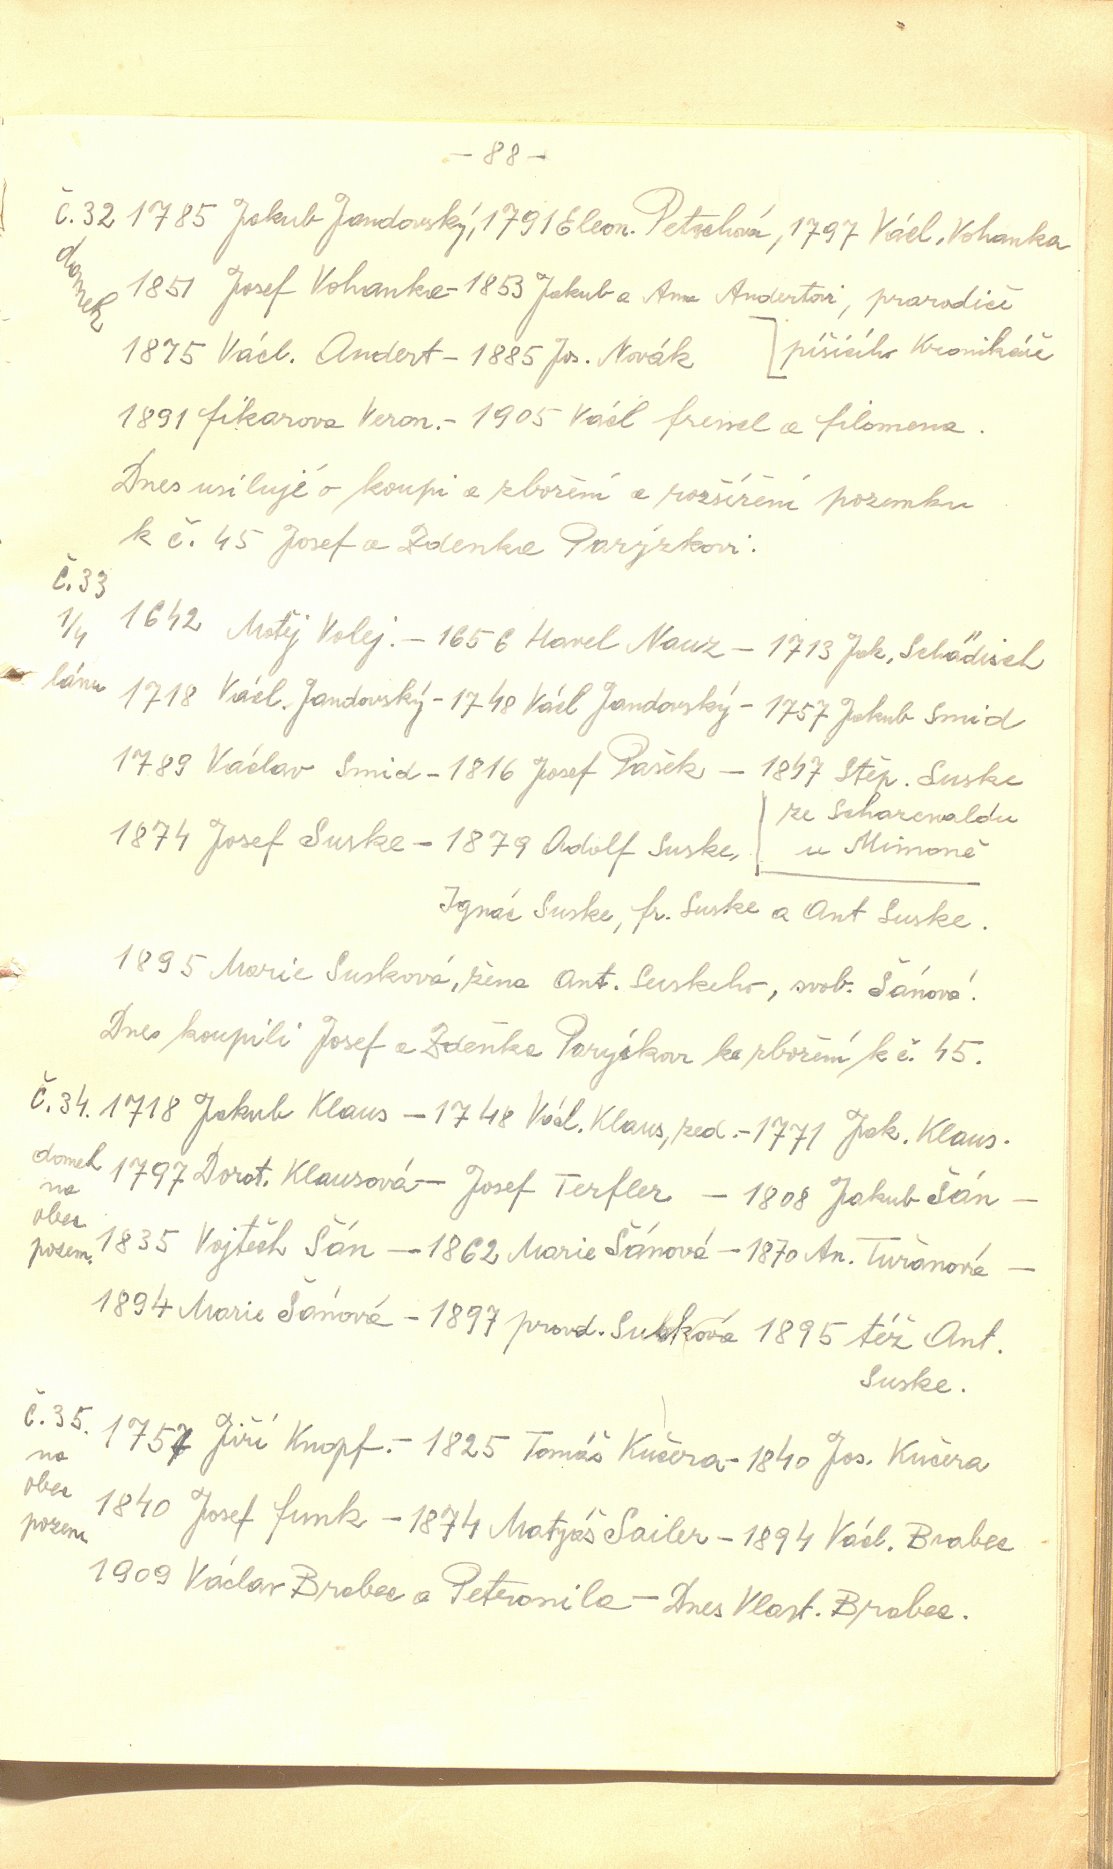 - 88 -
č. 32 1785 Jakub Jandovský, 1791 Eleon. Petschová, 1797 Václ. Vohanka
domek
1851 Josef Vohanka - 1853 Jakub a Ana Andertovi, prarodiče
1875 Václ. Andert - 1885 Jos. Novák píšícího kronikáře
1891 fikarova Veron. - 1905 Václ frenel a filomena.
Dnes usiluje o koupi a zboření a rozšíření pozemku
k č. 45 Josef a Zdenka Parýzkovi.
č. 33
1/4 1642 Motěj Volej. - 1656 Havel Nauz - 1713 Jak. Schädisch
lánu 1718 Václ. Jandovský - 1748 Václ Jandovský - 1757 Jakub Smid
1789 Václav Smid - 1816 Josef Pašek - 1847 Štěp. Suske
ze Scharewaldu
1874 Josef Suske - 1879 Adolf Suske, u Mimoně
Ignác Suske, fr. Suske a Ant Suske.
1895 Marie Susková, žena Ant. Suskeho, svob. Šánová.
Dnes koupili Josef a Zdeňka Parýzkov ke zboření k č. 45.
Č. 34. 1718 Jakub Klaus - 1748 Václ. Klaus, zed. - 1771 Jak. Klaus.
domek 1797 Dorot. Klausová - Josef Terfler - 1808 Jakub Šán -
na
obec
pozem. 1835 Vojtěch Šán - 1862 Marie Šánová - 1870 An. Tuřanová -
1894 Marie Šánová - 1897 provd. Susková 1895 též Ant.
Suske.
č. 35. 1757 Jiří Knopf. - 1825 Tomáš Kučera - 1840 Jos. Kučera
na
obec 1840 Josef funk - 1874 Matyáš Sailer - 1894 Václ. Brabec
pozem
1909 Václav Brabec a Petronila - Dnes Vlast. Brabec.